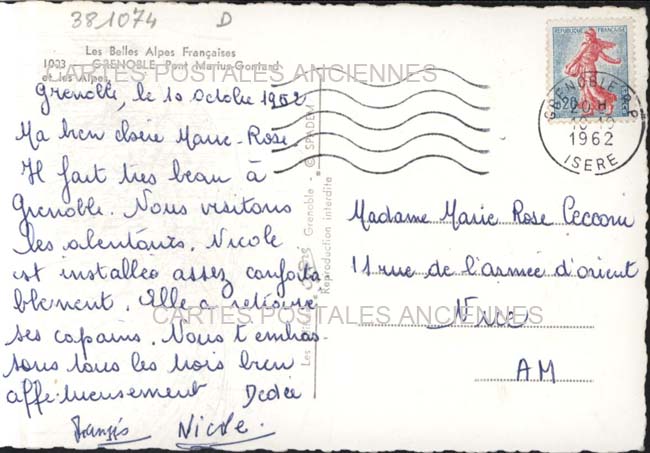 381074 D
Les Belles Alpes Françaises
1023 - GRENOBLE. Pont Marius-Gontard
et les Alpes.
CARTES POSTALES ANCIENNES
Grenoble, le 10 Octobre 1962
Ma bien chère Marie-Rose
Il fait très beau à
Grenoble. Nous visitons
les alentours. Nicole
est installée assez conforta
blement. Elle a retrouvé
ses copains. Nous t'embras-
sons tous les trois bien
affectueusement Dédée
Francis Nicole.
Les
Grenoble - © SPADEM
Reproduction interdite
REPUBLIQUE FRANÇAISE
0,20
GRENOBLE R.P.
20 H
10-10
1962
ISERE
Madame Marie Rose
11 rue de l'armée d'orient
Nice
CARTES POSTALES ANCIENNES
AM